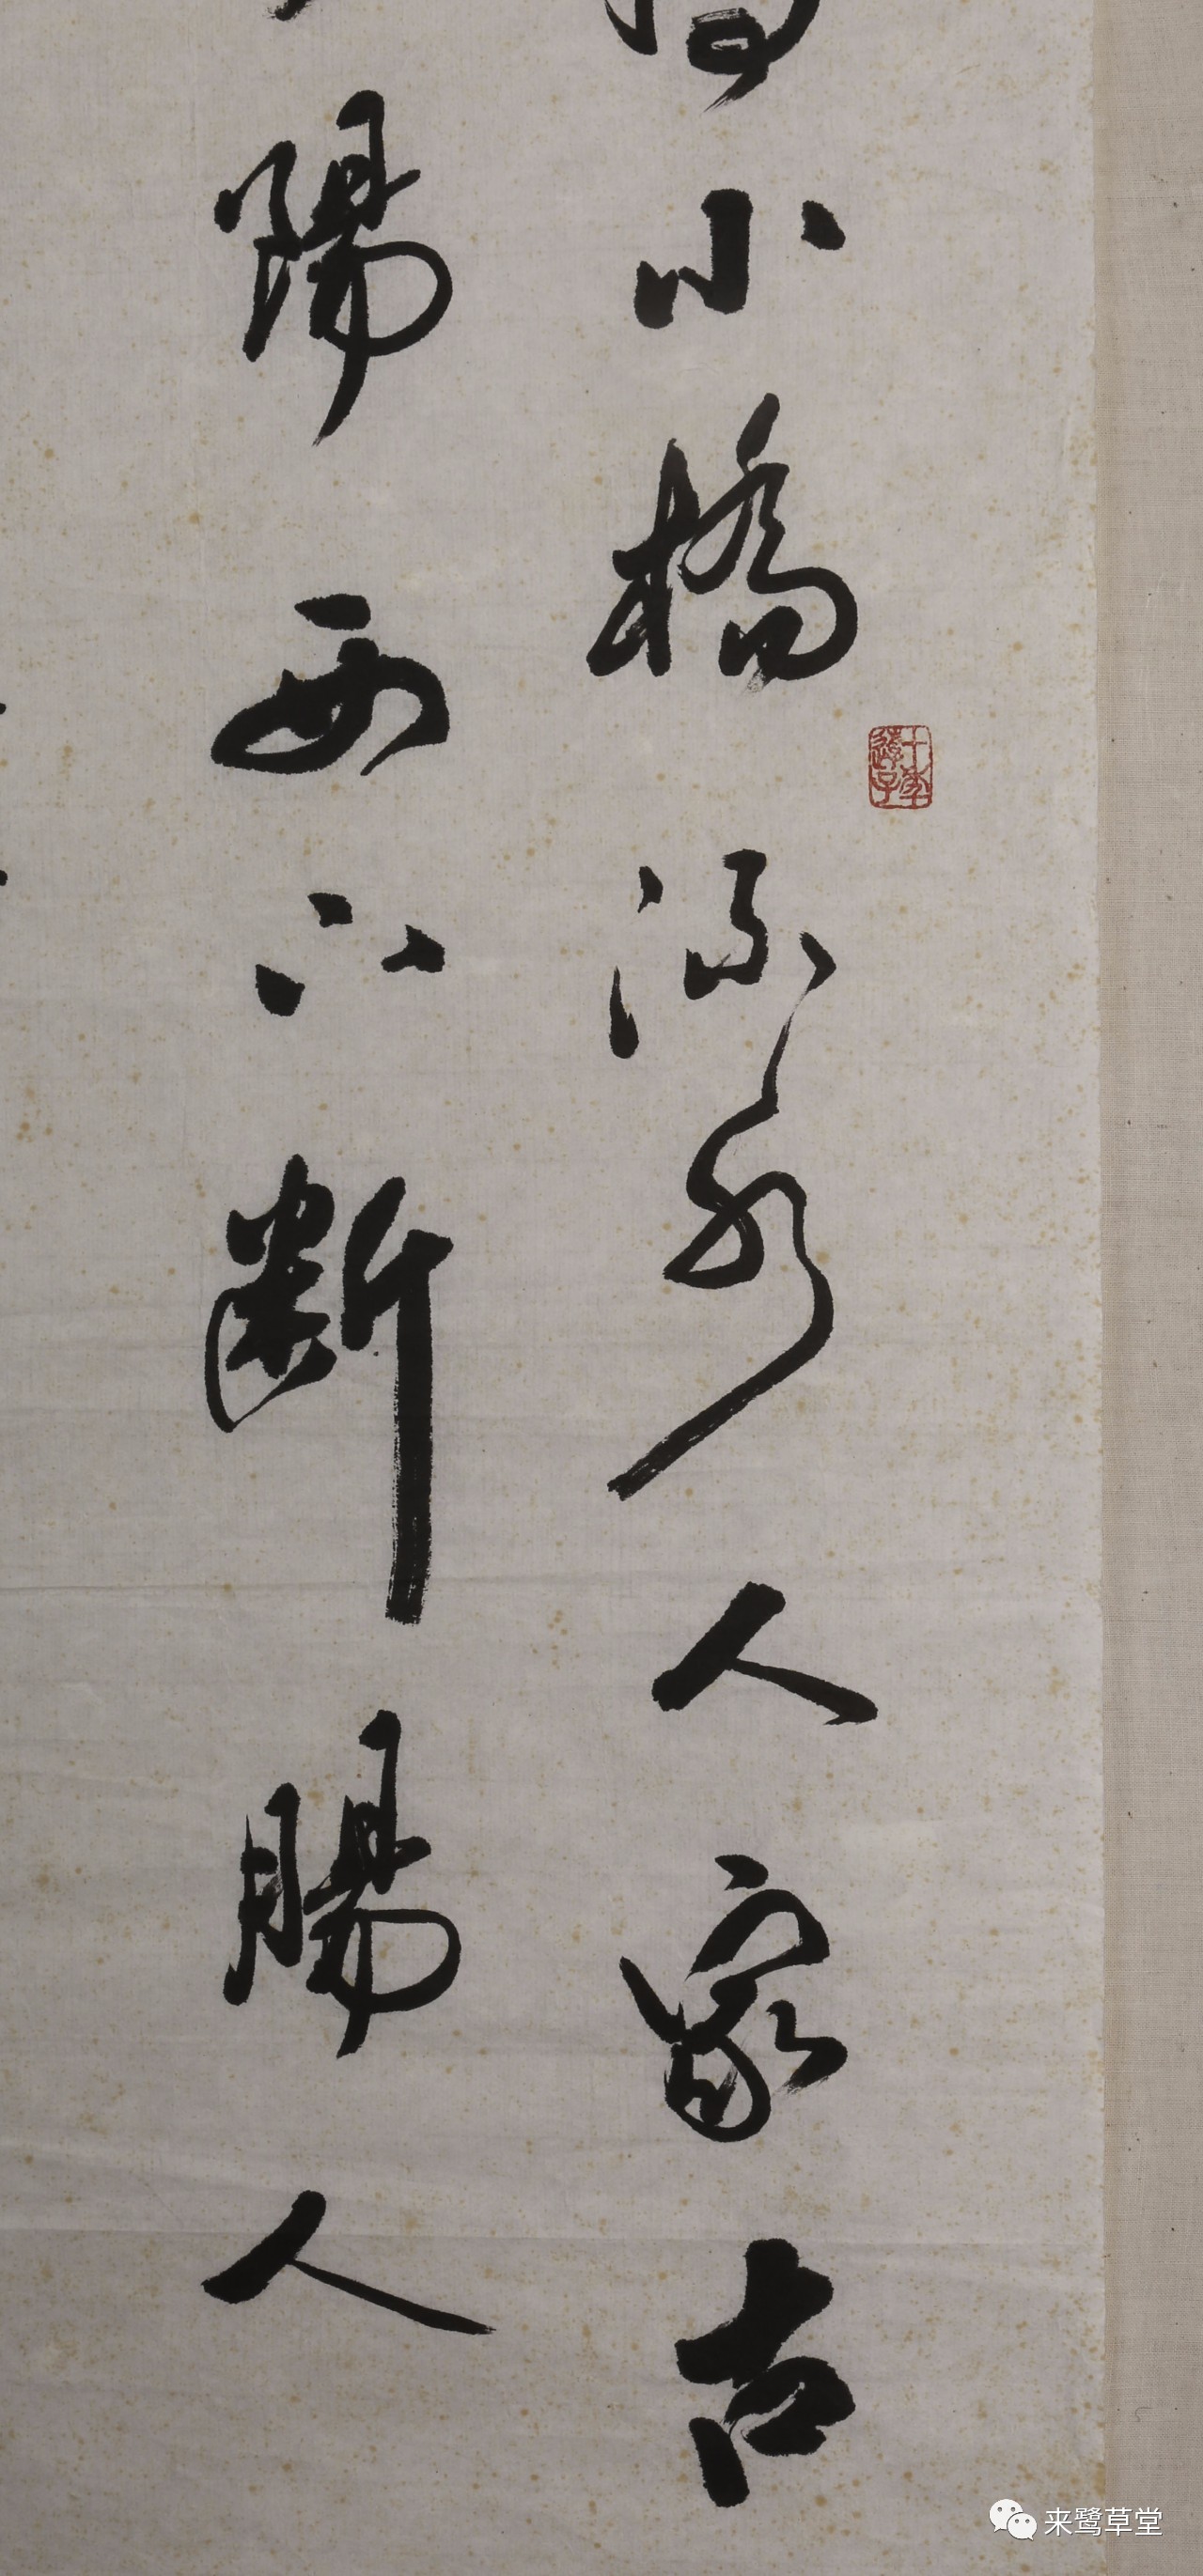 小橋流水人家古
陽西下断腸人
来鹭草堂